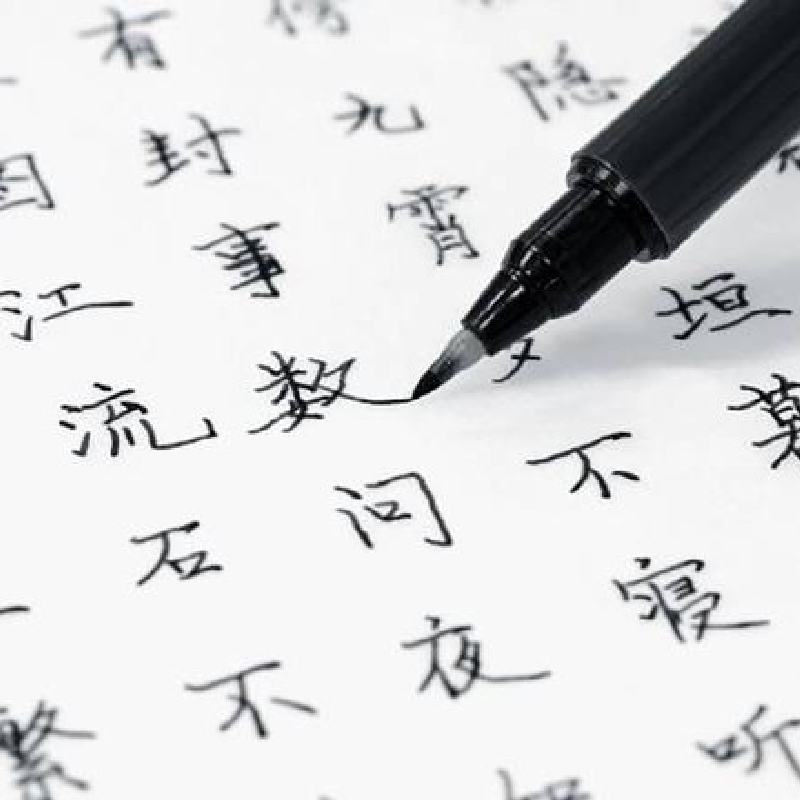 有
图 封 九 隐
江 事 霄
流 数 夕 垣
石 问 不
繁 不 夜 寝
听